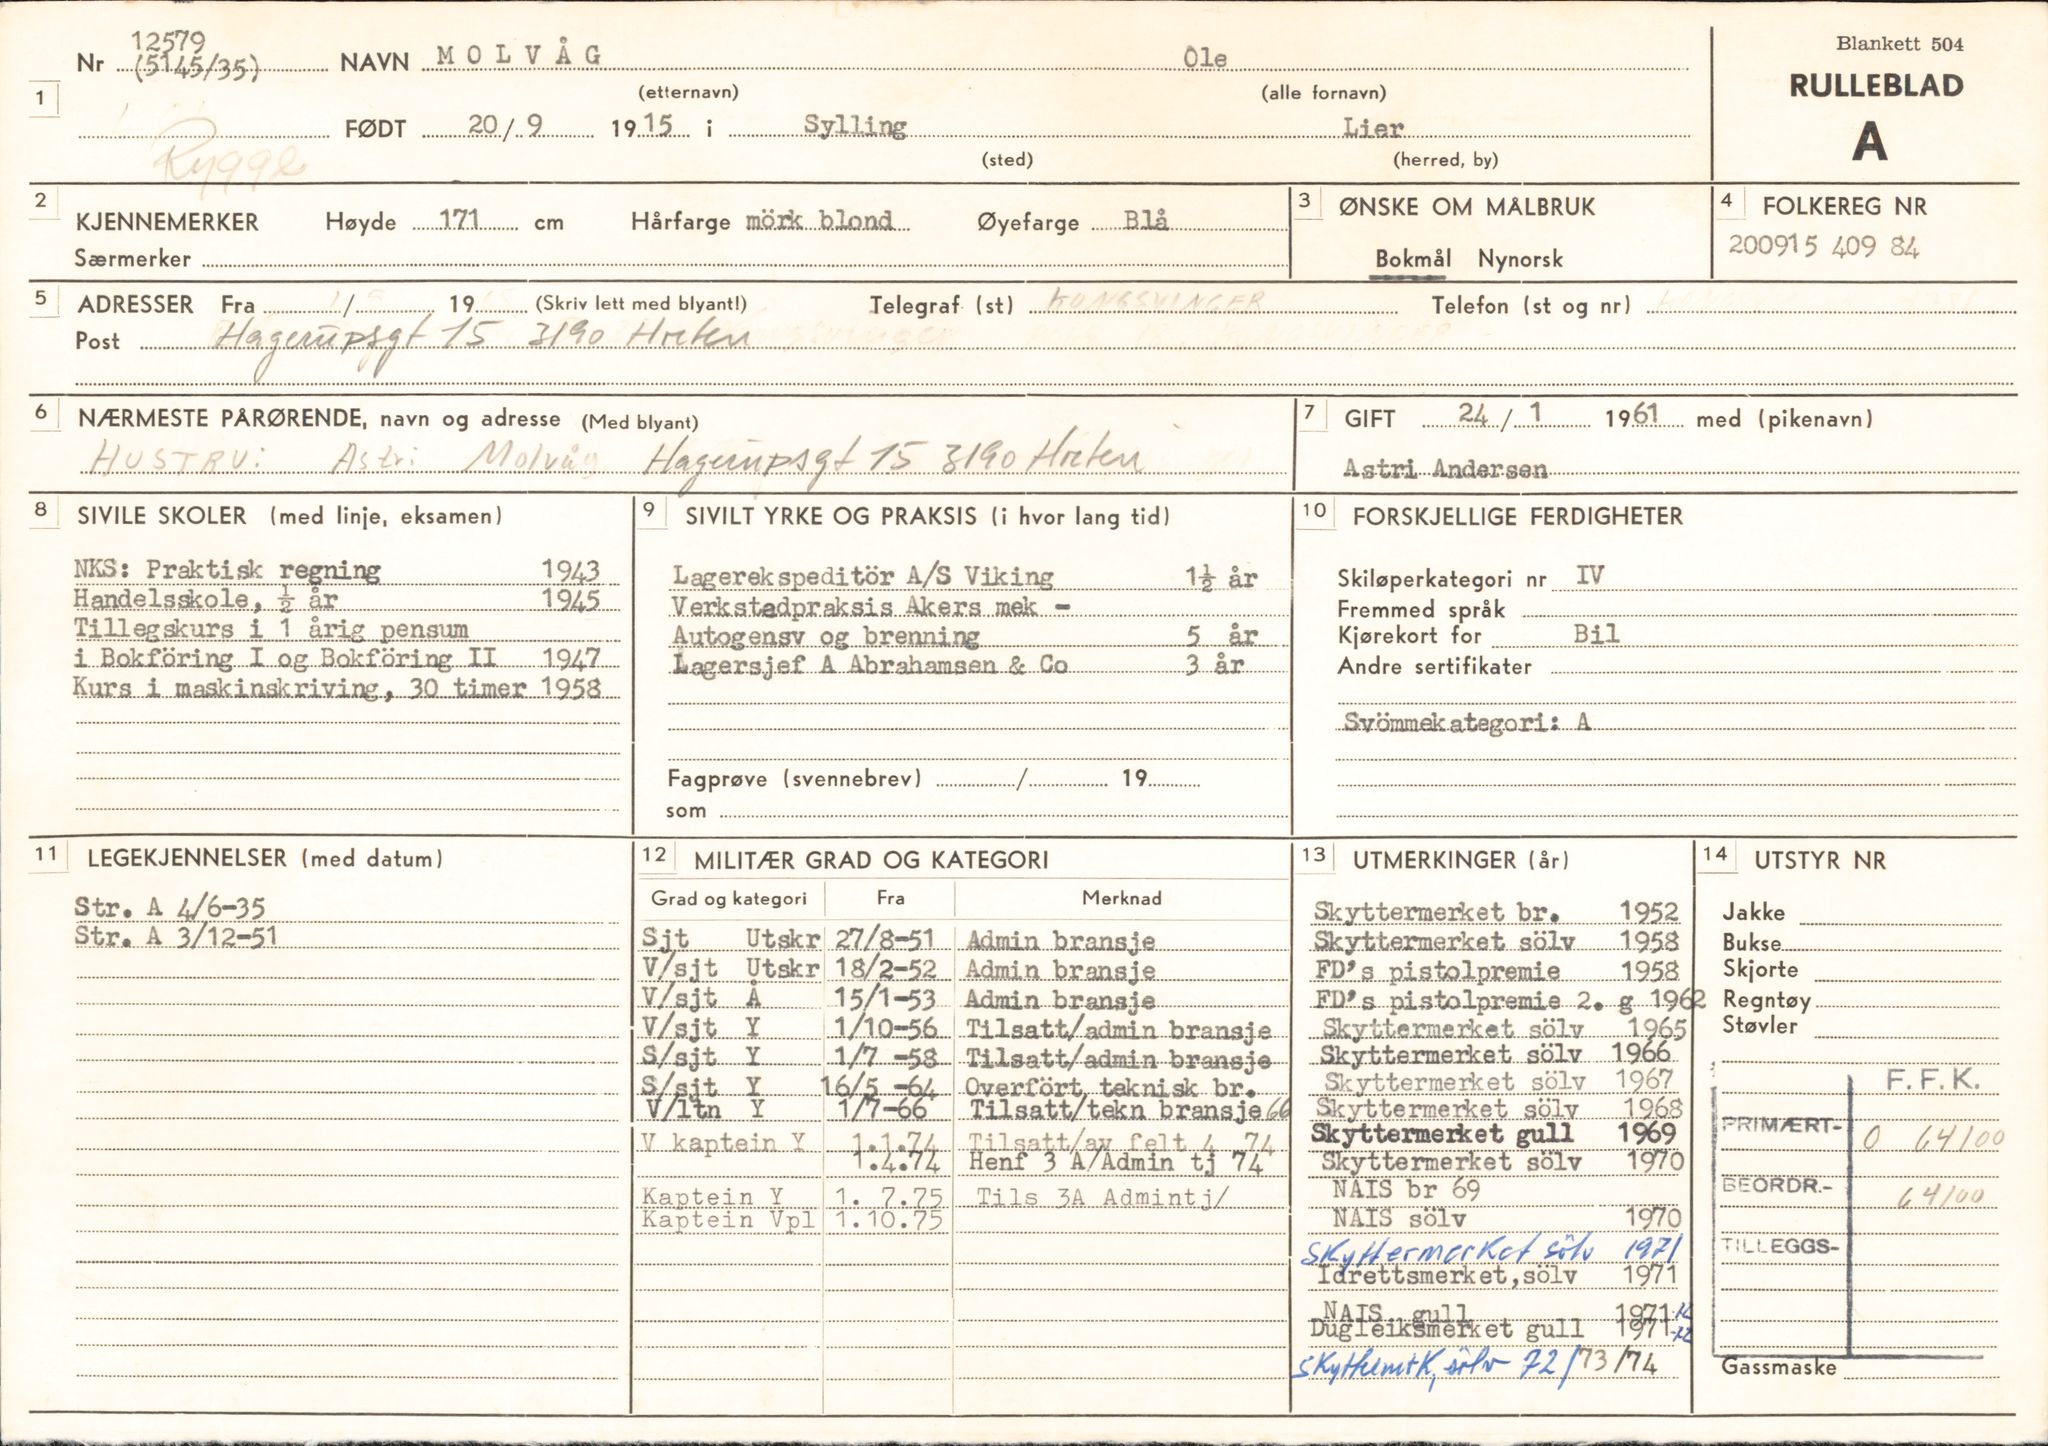 Blankett 504
RULLEBLAD
A
12579
Nr (5145/35) NAVN MOLVÅG Ole
(etternavn) (alle fornavn)
1
FØDT 20/9 1915 i Sylling Lier
(sted) (herred, by)
Rygge
2 KJENNEMERKER Høyde 171 cm Hårfarge mörk blond Øyefarge Blå
Særmerker
3 ØNSKE OM MÅLBRUK
Bokmål Nynorsk
4 FOLKEREG NR
200915 409 84
5 ADRESSER Fra / 19 (Skriv lett med blyant!) Telegraf (st) KONGSVINGER Telefon (st og nr)
Post Hagerupsgt 15 3190 Horten
6 NÆRMESTE PÅRØRENDE, navn og adresse (Med blyant)
HUSTRU: Astri Molvåg Hagerupsgt 15 3190 Horten
7 GIFT 24/1 1961 med (pikenavn)
Astri Andersen
8 SIVILE SKOLER (med linje, eksamen)
NKS: Praktisk regning 1943
Handelsskole, ½ år 1945
Tillegskurs i 1 årig pensum
i Bokföring I og Bokföring II 1947
Kurs i maskinskriving, 30 timer 1958
9 SIVILT YRKE OG PRAKSIS (i hvor lang tid)
Lagerekspeditör A/S Viking 1½ år
Verkstedpraksis Akers mek -
Autogensv og brenning 5 år
Lagersjef A Abrahamsen & Co 3 år
Fagprøve (svennebrev) / 19
som
10 FORSKJELLIGE FERDIGHETER
Skiløperkategori nr IV
Fremmed språk
Kjørekort for Bil
Andre sertifikater
Svömmekategori: A
11 LEGEKJENNELSER (med datum)
Str. A 4/6-35
Str. A 3/12-51
12 MILITÆR GRAD OG KATEGORI
Grad og kategori Fra Merknad
Sjt Utskr 27/8-51 Admin bransje
V/sjt Utskr 18/2-52 Admin bransje
V/sjt Å 15/1-53 Admin bransje
V/sjt Y 1/10-56 Tilsatt/admin bransje
S/sjt Y 1/7 -58 Tilsatt/admin bransje
S/sjt Y 16/5 -64 Overfört teknisk br.
V/ltn Y 1/7-66 Tilsatt/tekn bransje 66
V kaptein Y 1.1.74 Tilsatt/av felt 4 74
1.4.74 Henf 3 A/Admin tj 74
Kaptein Y 1. 7.75 Tils 3A Admintj/
Kaptein Vpl 1.10.75
13 UTMERKINGER (år)
Skyttermerket br. 1952
Skyttermerket sölv 1958
FD's pistolpremie 1958
FD's pistolpremie 2. g 1962
Skyttermerket sölv 1965
Skyttermerket sölv 1966
Skyttermerket sölv 1967
Skyttermerket sölv 1968
Skyttermerket gull 1969
Skyttermerket sölv 1970
NAIS br 69
NAIS sölv 1970
Skyttermerket sölv 1971
Idrettsmerket, sölv 1971
NAIS gull 1971
Dugleiksmerket gull 1971
sölv 72/73/74
14 UTSTYR NR
Jakke
Bukse
Skjorte
Regntøy
Støvler
F.F.K.
PRIMÆRT- 0 64100
BEORDR.- 64100
TILLEGGS-
Gassmaske